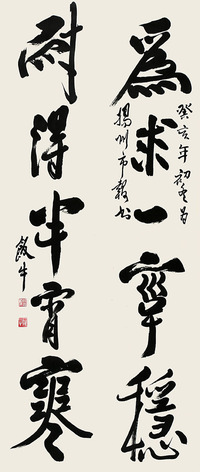 爲求一字穩
耐得半宵寒
癸亥年初冬爲
揚州市報
飯牛